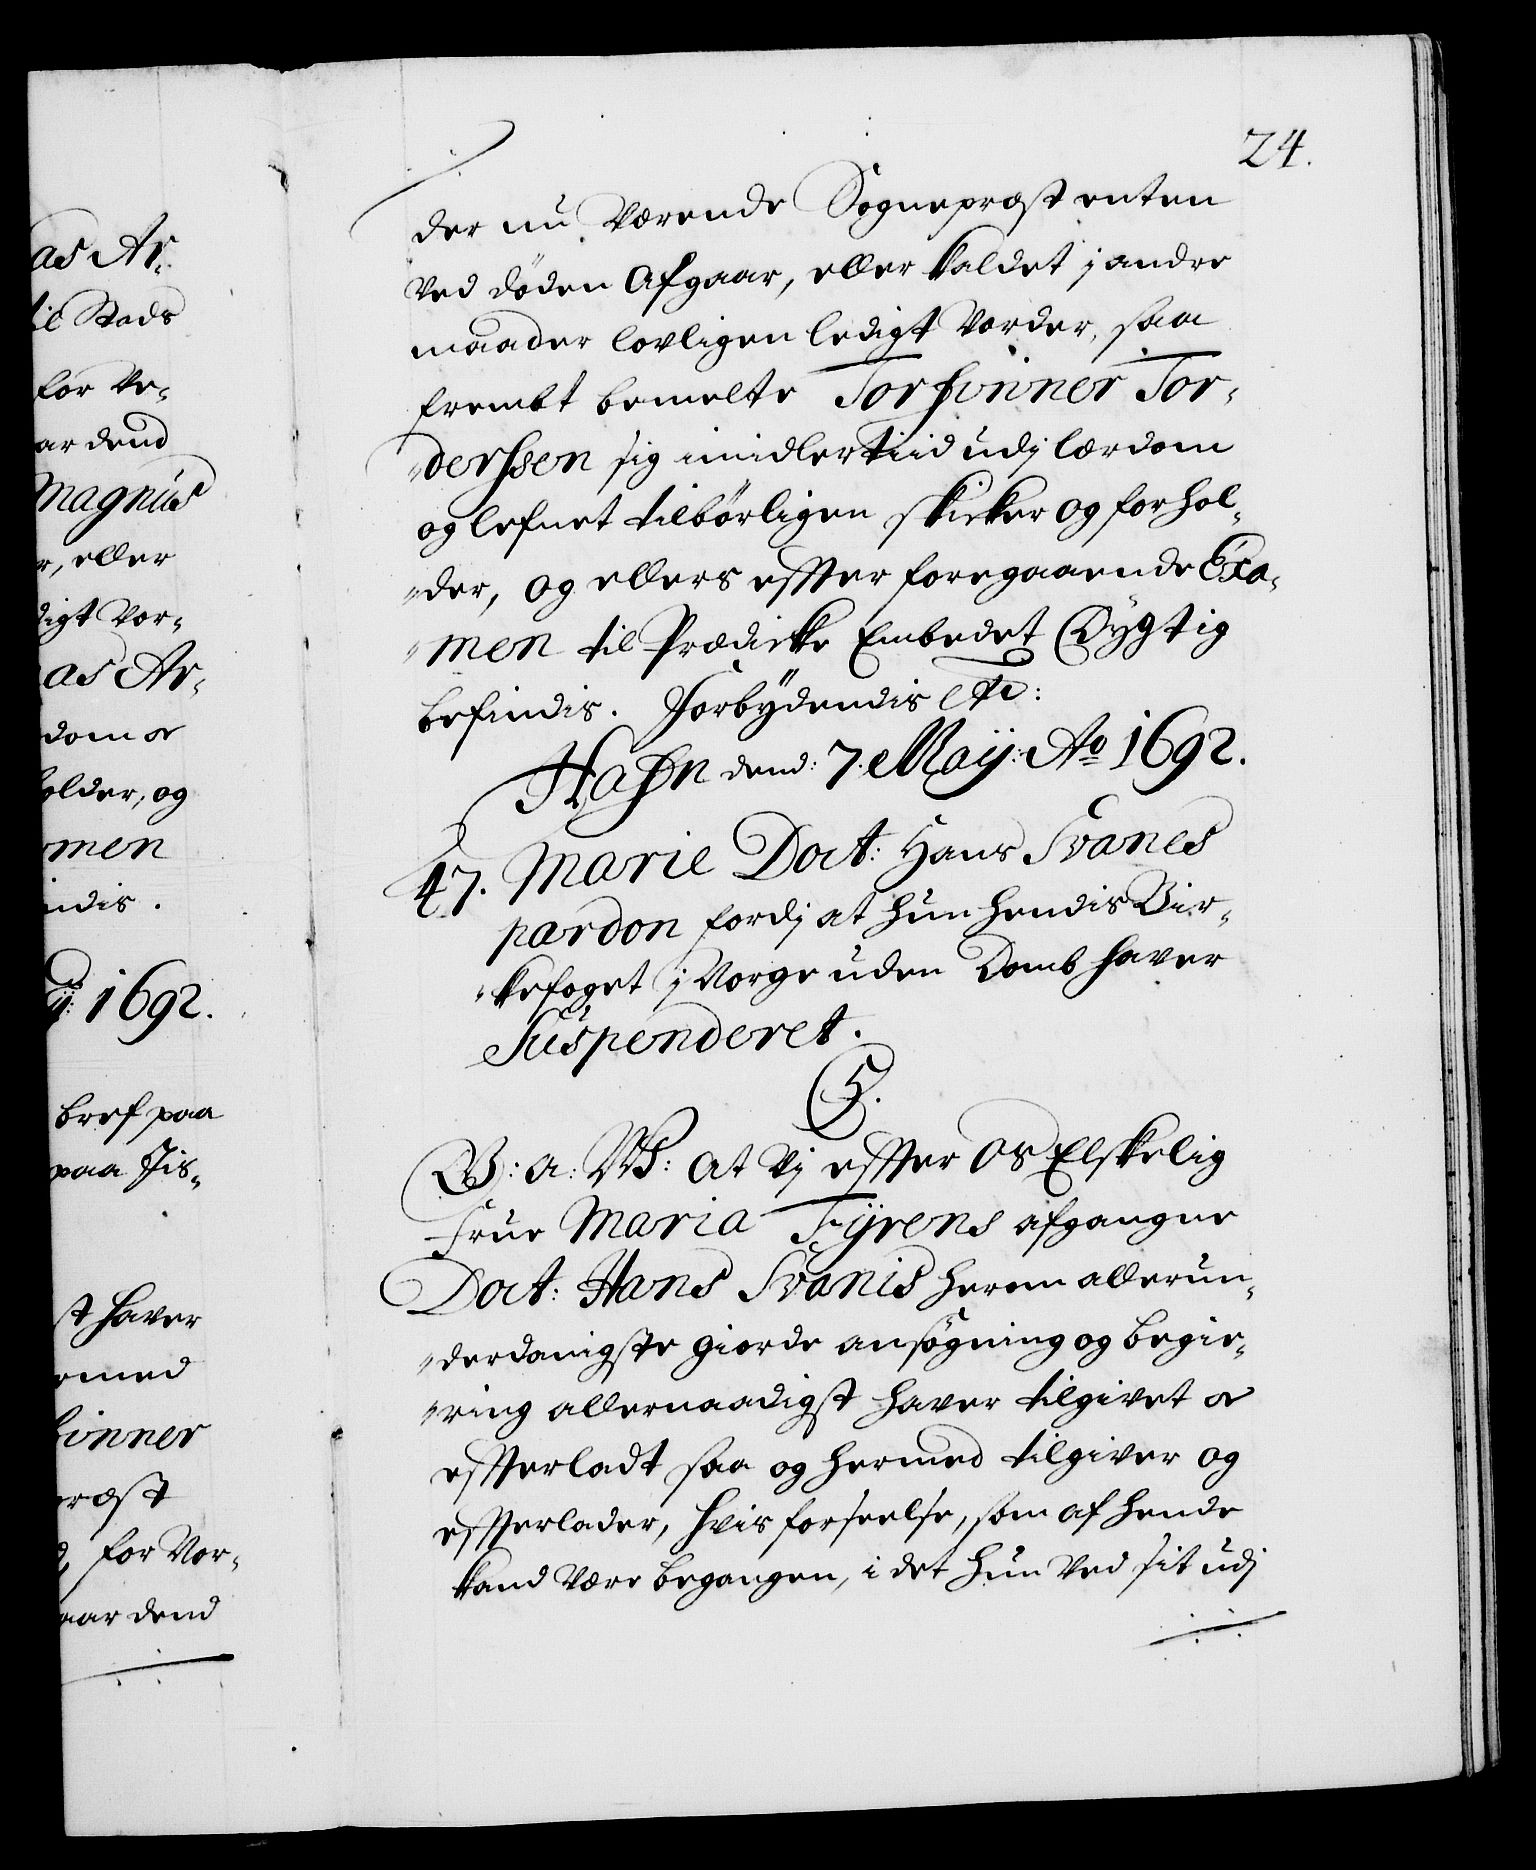 24.
der nu Værende Sognepræst enten
Ved döden Afgaar, eller kaldet j andre
maader lovligen ledigt Vorder, saa
frembt bemelte Torfinner Tor-
derssen sig imidlertiid udj lærdom
og lefnet tilbörligen skicker og forhol-
der, og ellers effter foregaaende Exa-
men til Prædicke Embedet Dygtig
befindis. Forbydendis etc:
Hafn dend: 7. Maij: Ao 1692.
47. Marie Doct: Hans Svanes
pardon fordj at hun hendis Bir-
kefoget j Norge uden Domb haver
Suspenderet.
C5.
G: a: V: At Vj effter Os Elskelig
Frue Maria Fÿrens afgangne
Doct: Hans Svanis herom allerun-
derdanigste giorde ansögning og begie-
ring allernaadigst haver tilgivet og
effterladt saa og hermed tilgiver og
effterlader, hvis forseelse, som af hende
kand være begangen, i det hun Ved sit udj
as Ar-
til Stads
for Ve-
ar dend
Magnus
r, eller
digt Vor-
as Ar-
dom og
holder, og
men
indis.
ij: 1692.
bref paa
paa Jis-
st haver
rmed
finner
præst
d, for Vor-
aar dend